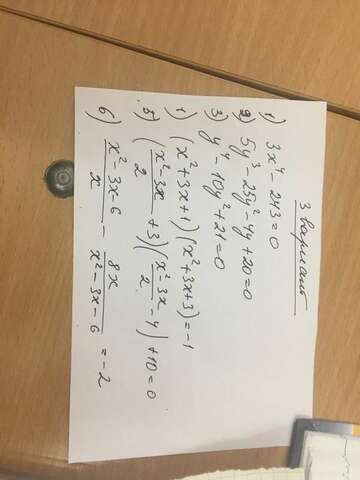 3 вариант
1) 3x⁴ - 243 = 0
2) 5y³ - 25y² - 4y + 20 = 0
3) y⁴ - 10y² + 21 = 0
1) (x² + 3x + 1)(x² + 3x + 3) = -1
5) (x² - 3x / 2 + 3)(x² - 3x / 2 - 4) + 10 = 0
6) x² - 3x - 6 / x - 8x / x² - 3x - 6 = -2